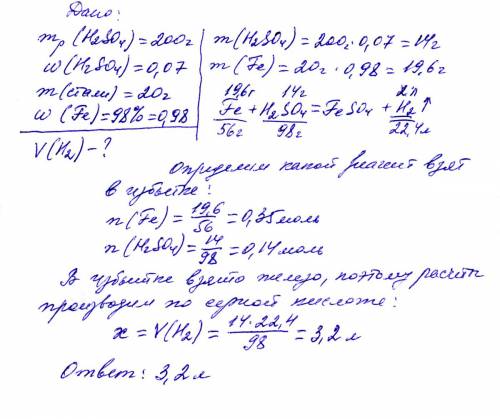 Дано:
mр(H2SO4)=200г
w(H2SO4)=0,07
m(стали)=20г
w(Fe)=98%=0,98
V(H2)-?
m(H2SO4)=200г·0,07=14г
m(Fe)=20г·0,98=19,6г
19,6г 14г xл
Fe+H2SO4=FeSO4+H2↑
56г 98г 22,4л
Определим какой реагент взят
в избытке:
n(Fe)=19,6/56=0,35моль
n(H2SO4)=14/98=0,14моль
В избытке взято железо, поэтому расчёты
производим по серной кислоте:
x=V(H2)=14·22,4/98=3,2л
Ответ: 3,2л